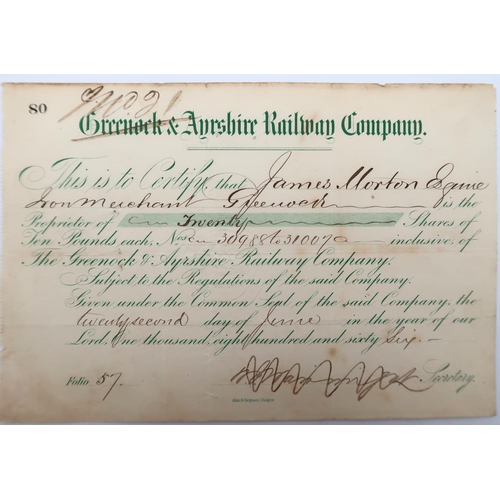 80
Greenock & Ayrshire Railway Company.
This is to Certify, that James Morton Esquire
Iron Merchant Greenock is the
Proprietor of Twenty Shares of
Ten Pounds each, Nos 30988 to 31007 inclusive of
The Greenock & Ayrshire Railway Company.
Subject to the Regulations of the said Company.
Given under the Common Seal of the said Company, the
twenty second day of June in the year of our
Lord, one thousand eight hundred and sixty Six.
Folio 57. Secretary.